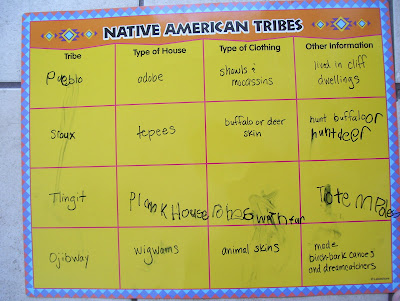 NATIVE AMERICAN TRIBES
Tribe Type of House Type of Clothing Other Information
Pueblo adobe shawls & moccasins lived in cliff dwellings
Sioux tepees buffalo or deer skin hunt buffalo or hunt deer
Tlingit Plank House robes with fur Totem Poles
Ojibway wigwams animal skins made birch-bark canoes and dreamcatchers